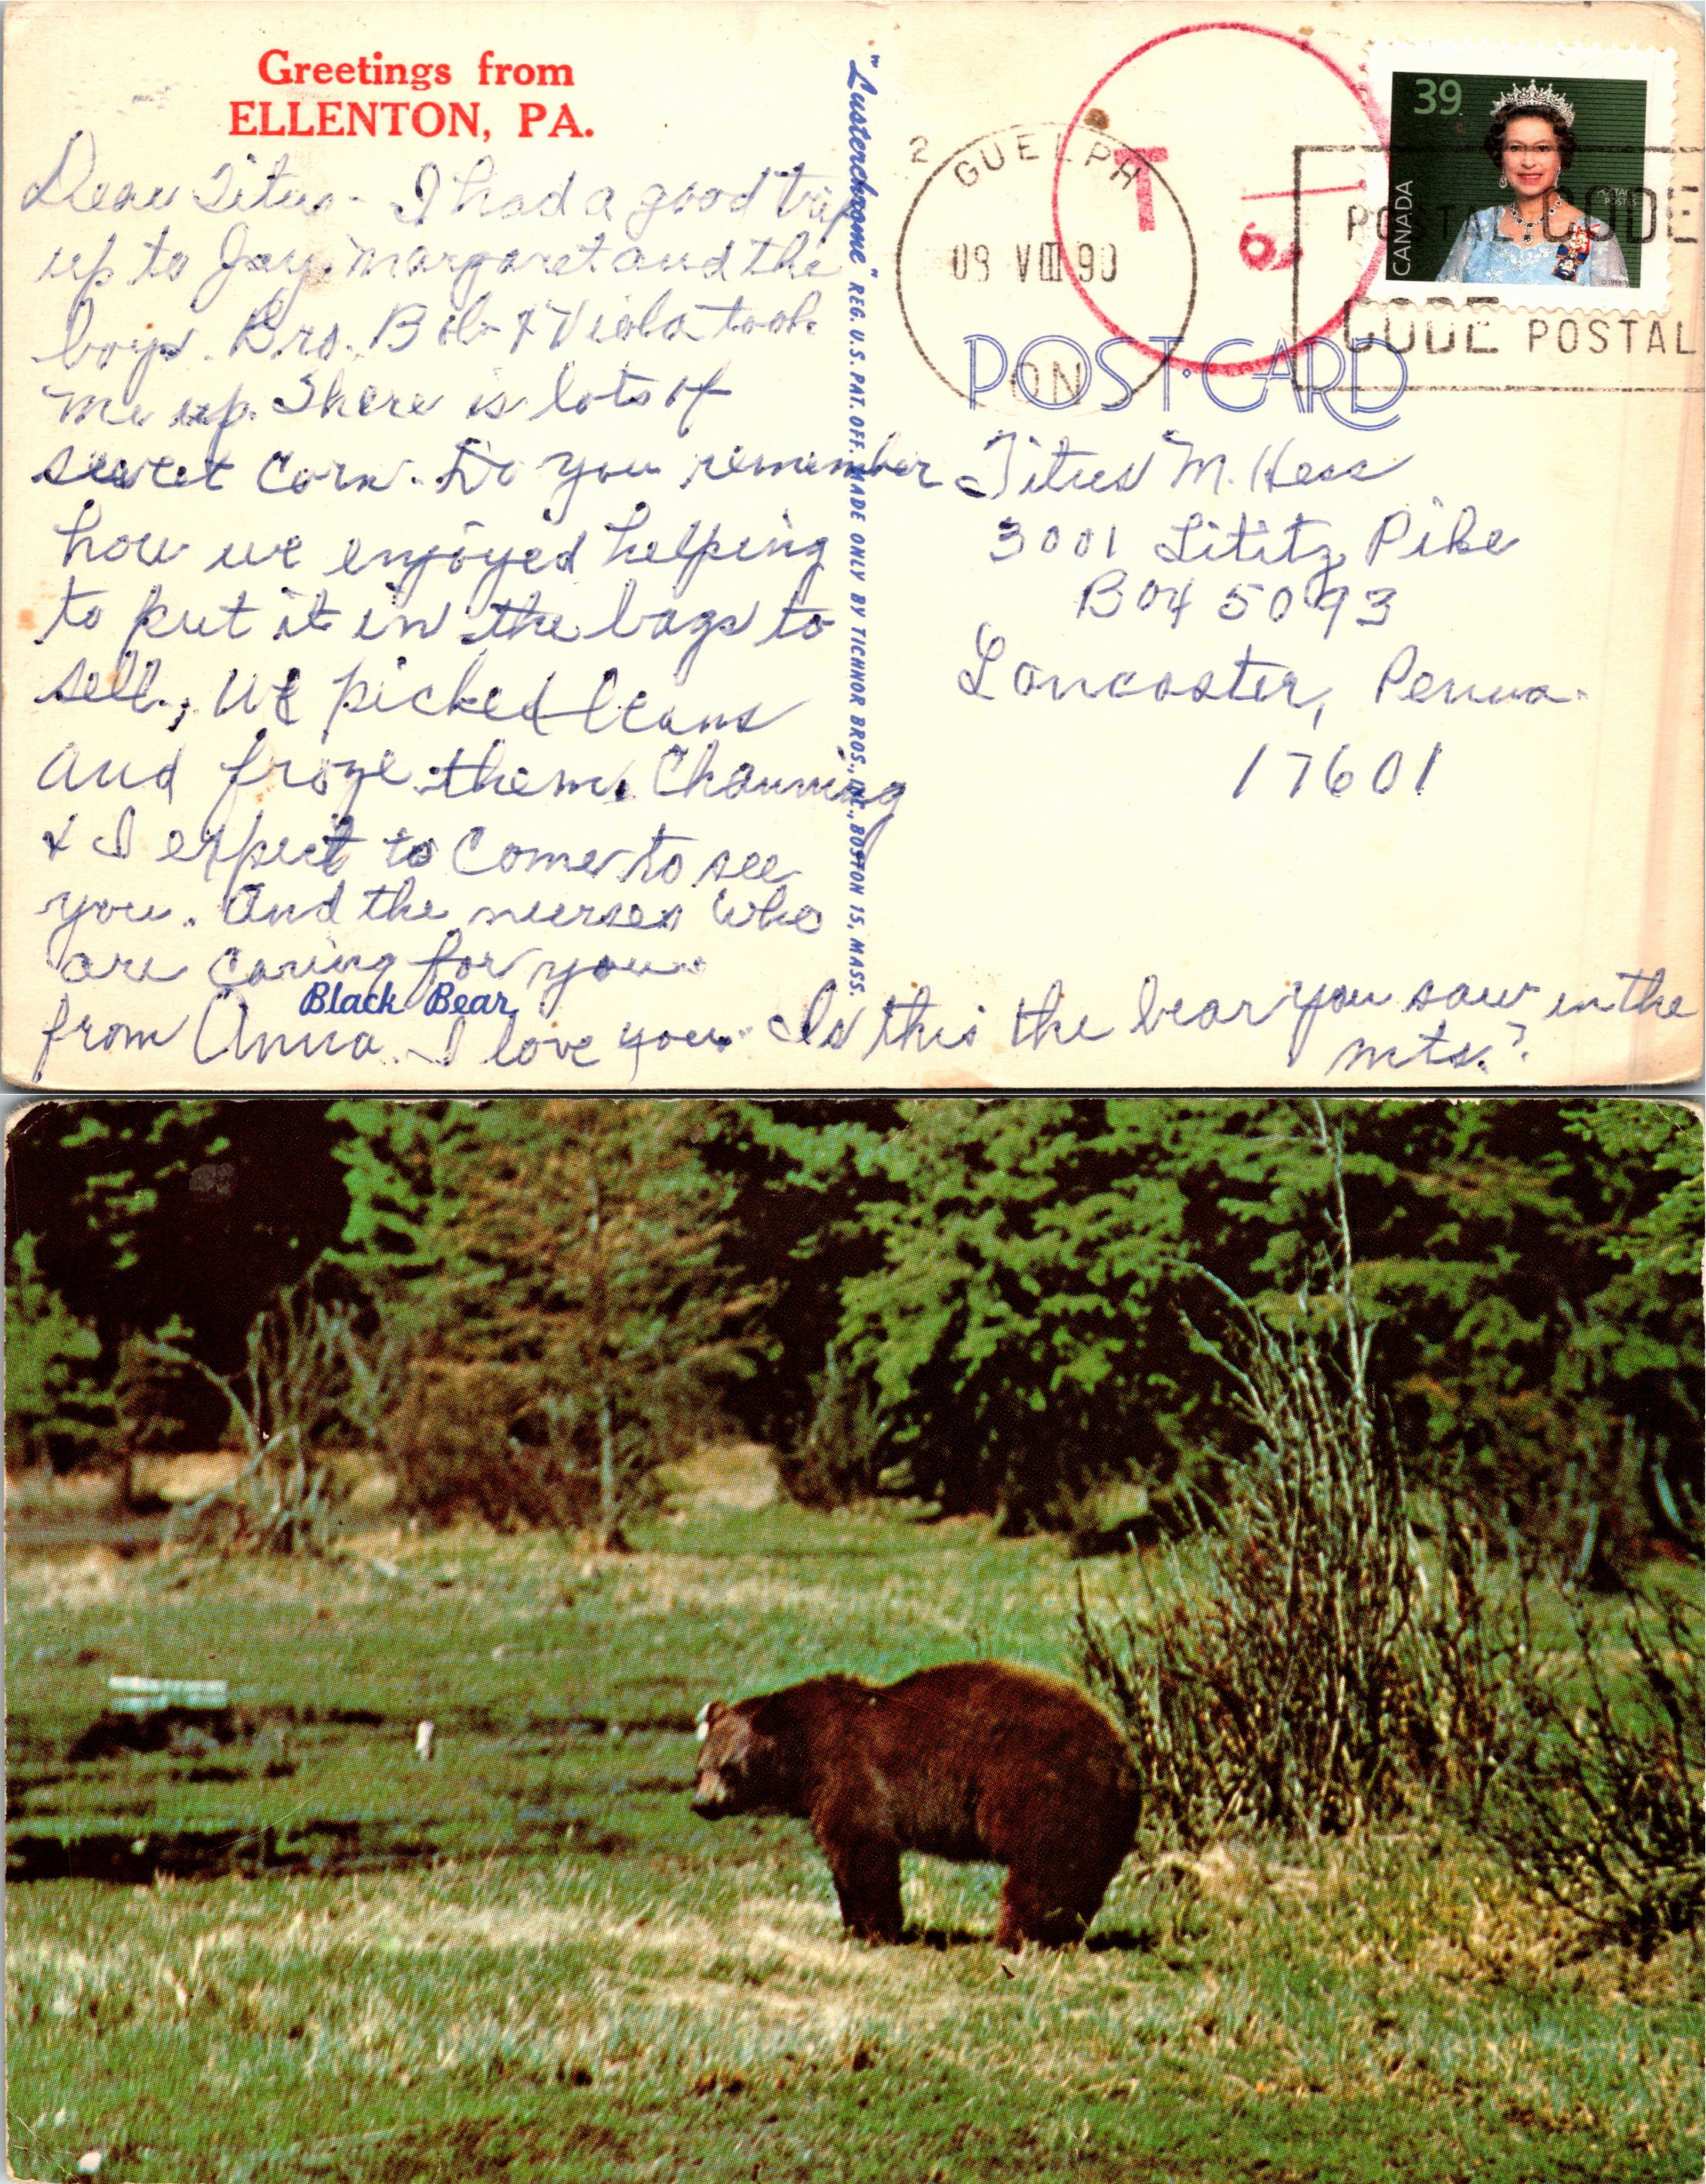 Greetings from
ELLENTON, PA.
Dear Titus - I had a good trip
up to Jay, Margaret and the
boys. Bro. Bob & Viola took
me up. There is lots of
sweet Corn. Do you remember
how we enjoyed helping
to put it in the bags to
sell, We picked beans
and froze them. Channing
& I expect to come to see
you. And the nurses who
are caring for you.
Black Bear
from Anna. I love you. Is this the bear you saw in the
mts.?
"Lusterchrome" REG. U.S. PAT. OFF. MADE ONLY BY TICHNOR BROS., INC., BOSTON 15, MASS.
2
GUELPH
09 VIII 90
ON
T
39
CANADA
POSTAGE
POSTES
POSTAL CODE
CODE POSTAL
POST CARD
Titus M. Hess
3001 Lititz Pike
Box 5093
Lancaster, Penna.
17601